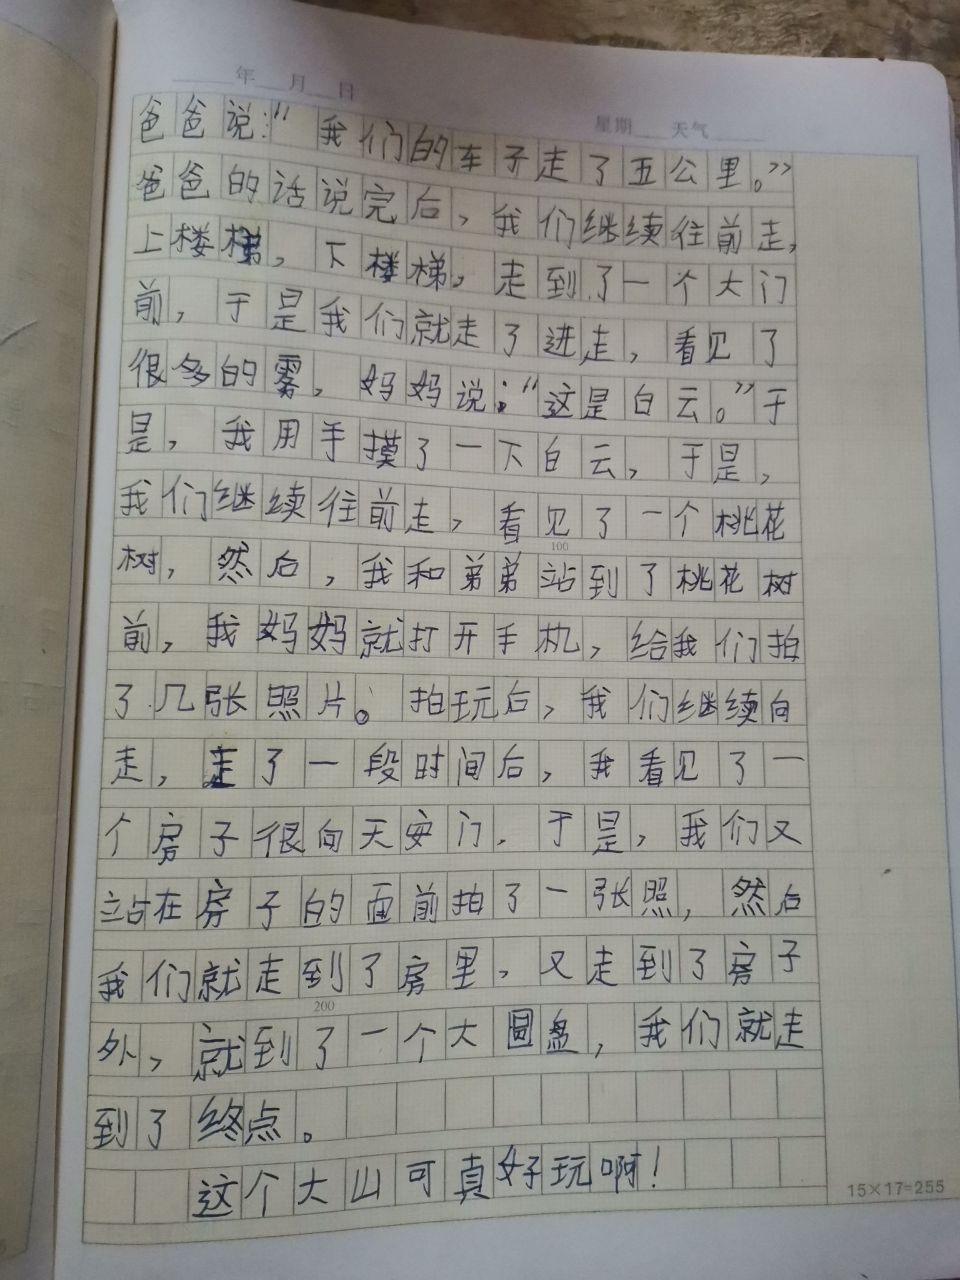 年 月 日
星期 天气
爸爸说:“我们的车子走了五公里。”
爸爸的话说完后,我们继续往前走,
上楼梯,下楼梯,走到了一个大门
前,于是我们就走了进走,看见了
很多的雾,妈妈说:“这是白云。”于
是,我用手摸了一下白云,于是,
我们继续往前走,看见了一个桃花
100
树,然后,我和弟弟站到了桃花树
前,我妈妈就打开手机,给我们拍
了几张照片。拍玩后,我们继续向
走,走了一段时间后,我看见了一
个房子很向天安门,于是,我们又
站在房子的面前拍了一张照,然后
我们就走到了房里,又走到了房子
200
外,就到了一个大圆盘,我们就走
到了终点。
这个大山可真好玩啊!
15×17=255